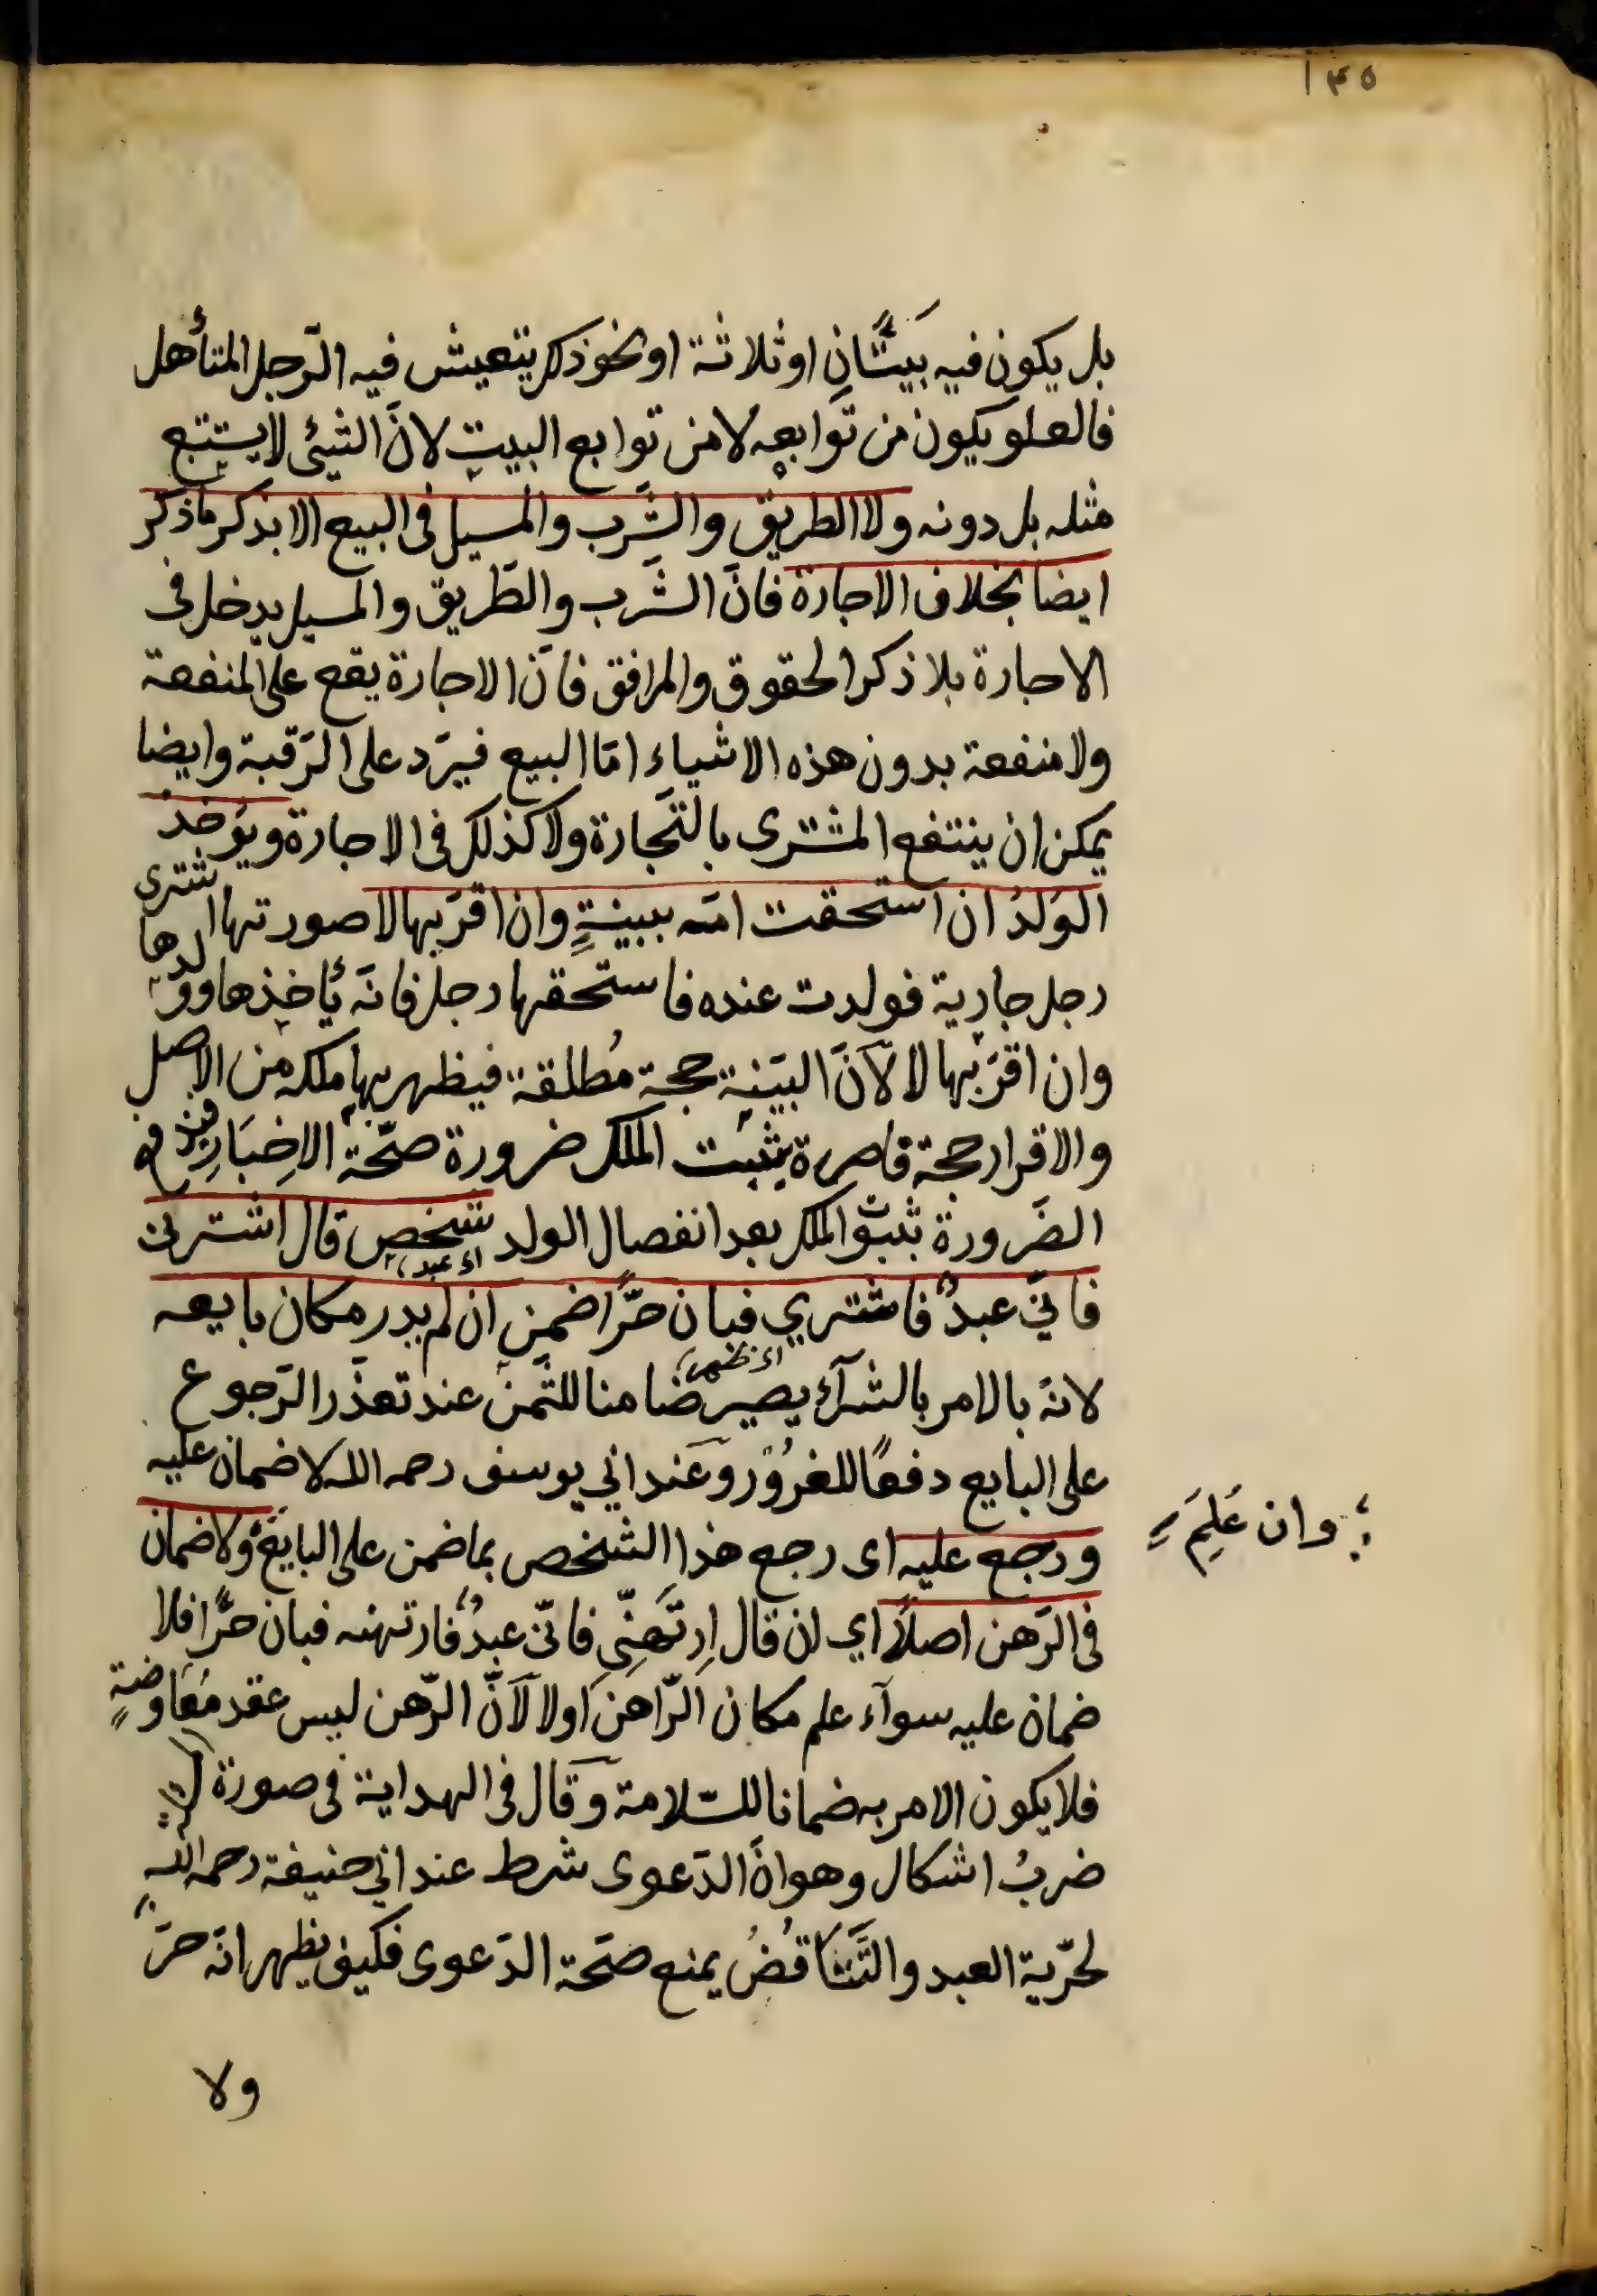 ١٣٥
بل يكون فيه بَيتَانِ او ثلاثة او نحو ذلك يتعيش فيه الرّجل المتأهل
فالعلو يكون من توابعه لا من توابع البيت لانَّ الشيئ لا يستتبع
مثله بل دونه ولا الطريق والشرب والمسيل فى البيع الا بذكر ما ذكر
ايضا بخلاف الاجارة فانّ الشَّرب والطَّريق والمسيل يدخل فى
الاجارة بلا ذكر الحقوق والمرافق فانّ الاجارة يقع على المنفعة
ولا منفعة بدون هذه الاشياء امّا البيع فيرَد على الرَّقبة وايضا
يمكن ان ينتفع المشترى بالتّجارة ولا كذلك فى الاجارة ويؤخذ
الوَلدُ ان استحقت امّه ببينةٍ وان اقرّ بها لا صورتها اشترى
رجل جارية فولدت عنده فاستحقها رجل فانّه يأخذها وولدها
وان اقرّ بها لا لانّ البيّنة حجة مُطلقة فيظهر بها ملكه من الاصل
والاقرار حجة قاصرة يثبت الملك ضرورة صحّة الاخبَارِ فيند فع
الضَّرورة بثبوت الملك بعد انفصال الولد شخص قال اشترنى
اى عبد
فانّي عبدٌ فاشتري فبان حرًّا ضمن ان لم يدر مكان بايعه
اى ظهر
لانّه بالامر بالشرآء يصير ضامنا للثّمن عند تعذّر الرّجوع
على البايع دفعًا للغرُور وعند ابي يوسف رحمه الله لا ضمان عليه
ورجع عليه اى رجع هذا الشخص بما ضمن على البايع ولا ضمان
وان عَلِمَ
فى الرّهن اصلاً اي ان قال اِرتَهنِّي فانّى عبدٌ فارتهنه فبان حرًّا فلا
ضمان عليه سوآء علم مكان الرّاهن اولا لانّ الرّهن ليس عقد مُعَاوضةٍ
فلا يكون الامر به ضمانا للسّلامة وقال فى الهداية فى صورة
ضربُ اشكال وهو انّ الدّعوى شرط عند ابي حنيفة رحمه الله
لحرّية العبد والتَّنَاقُضُ يمنع صحّة الدّعوى فكيف يظهر انّه حرّ
ولا